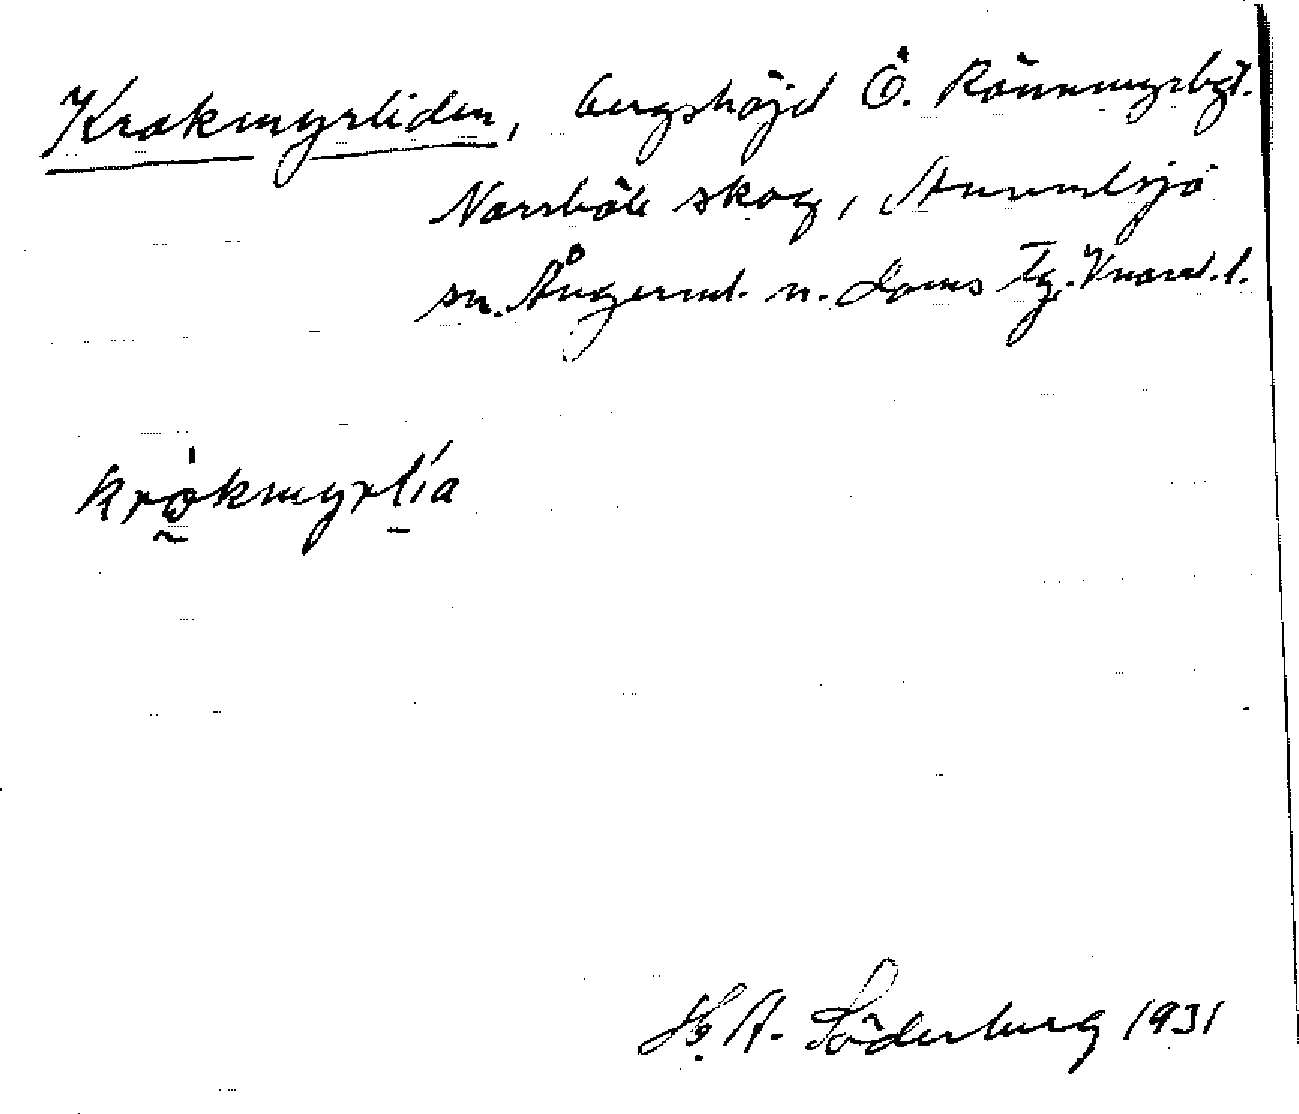 Krokmyrliden, bergshöjd Ö. Rönnmyrbgt.
Norrböle skog, Anundsjö
sn. Ångerml. n. doms Tg. Kvard. l.
krokmyrlía
H. A. Söderberg 1931